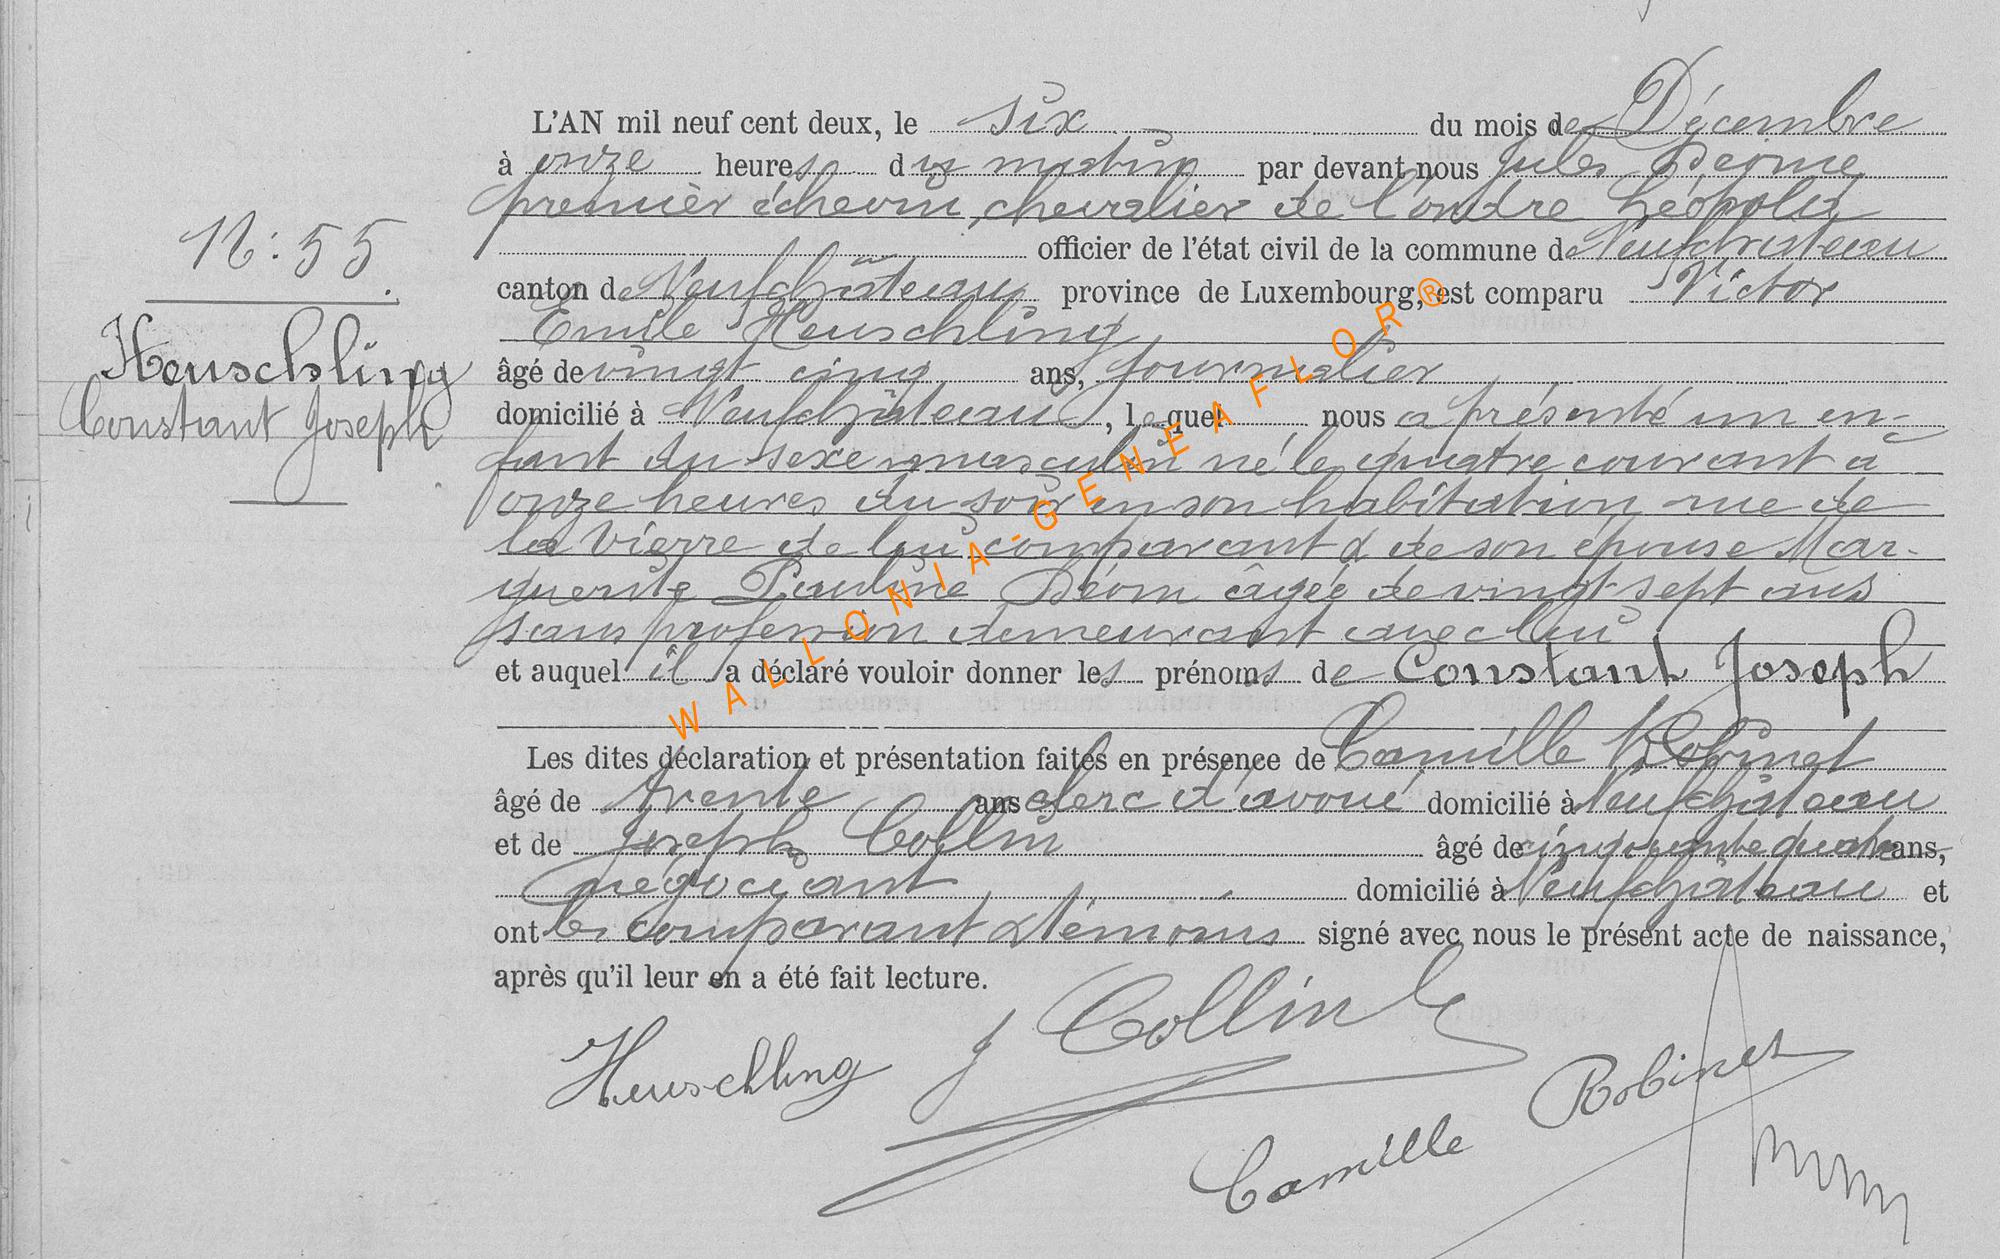 L'AN mil neuf cent deux, le six du mois de Décembre
à onze heures du matin par devant nous Jules
premier échevin, chevalier de l'ordre Léopold
officier de l'état civil de la commune de Neufchateau
N: 55.
canton de Neufchâteau province de Luxembourg, est comparu Victor
Emile Heuschling
Heuschling
âgé de vingt cinq ans, journalier
Constant Joseph
domicilié à Neufchâteau, lequel nous a présenté un en-
fant du sexe masculin né le quatre courant à
onze heures du soir en son habitation rue de
la Vierre de lui comparant & de son épouse Mar-
guerite Pauline Déom âgée de vingt-sept ans
sans profession demeurant avec lui
et auquel il a déclaré vouloir donner les prénoms de Constant Joseph
Les dites déclaration et présentation faites en présence de Camille Robinet
âgé de trente ans clerc d'avoué domicilié à Neufchâteau
et de Joseph Collin âgé de cinquante quatre ans,
négociant domicilié à Neufchâteau et
ont les comparant & témoins signé avec nous le présent acte de naissance,
après qu'il leur en a été fait lecture.
Heuschling J Collin
Camille Robinet
WALLONIA-GENEAFLOR®